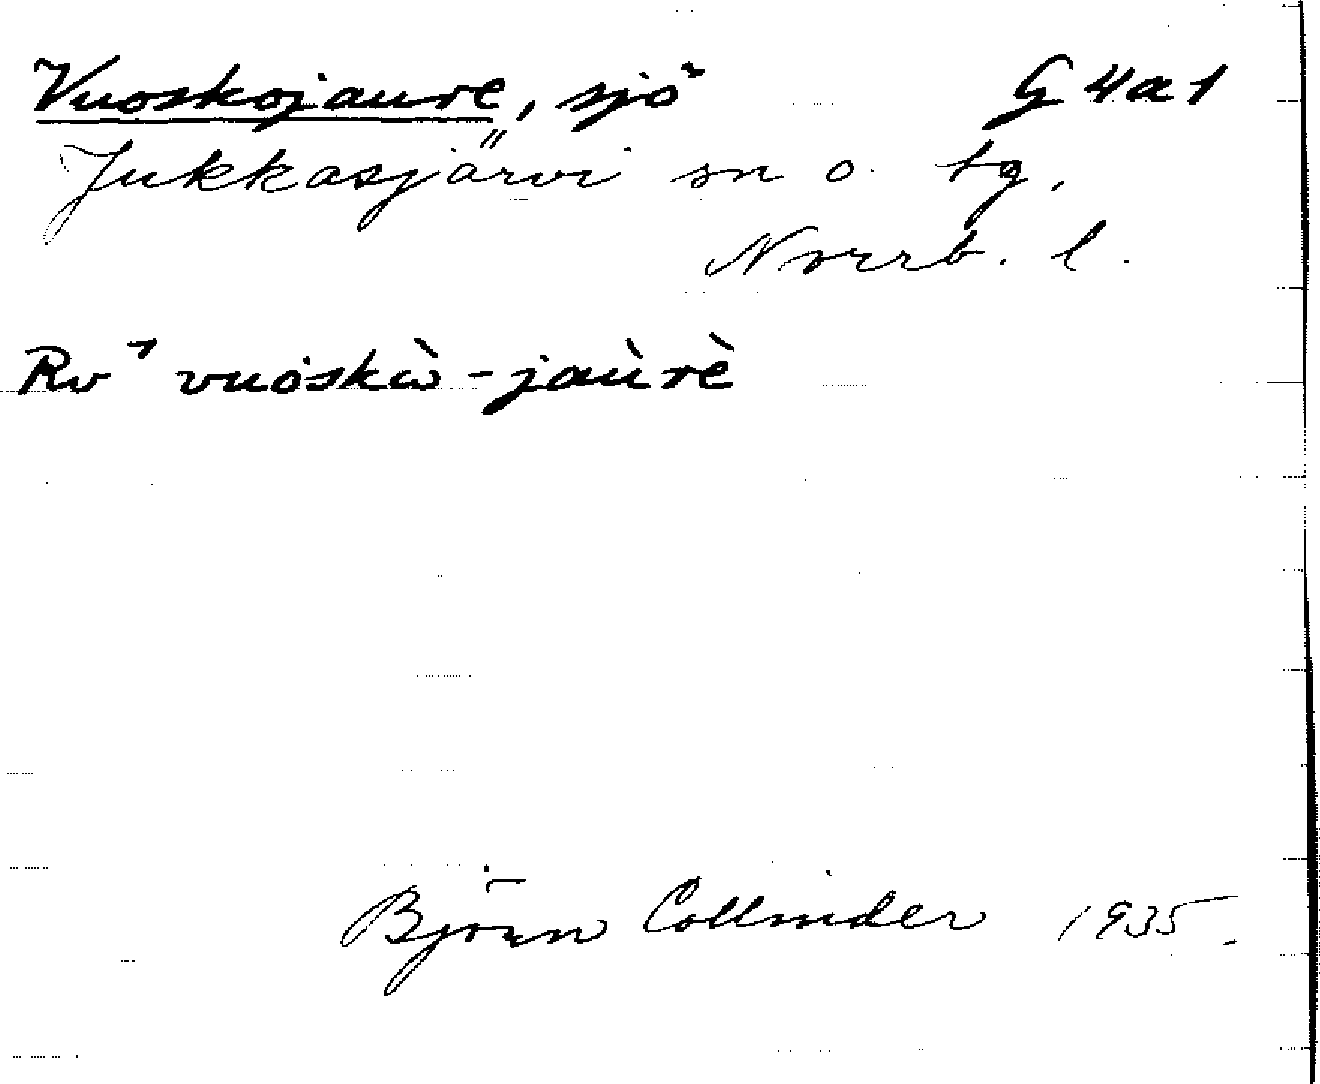 Vuoskojaure, sjö G 4a1
Jukkasjärvi sn o. tg.
Norrb. l.
Rv⁊ vuòskò̀-jaùrè
Björn Collinder 1935.